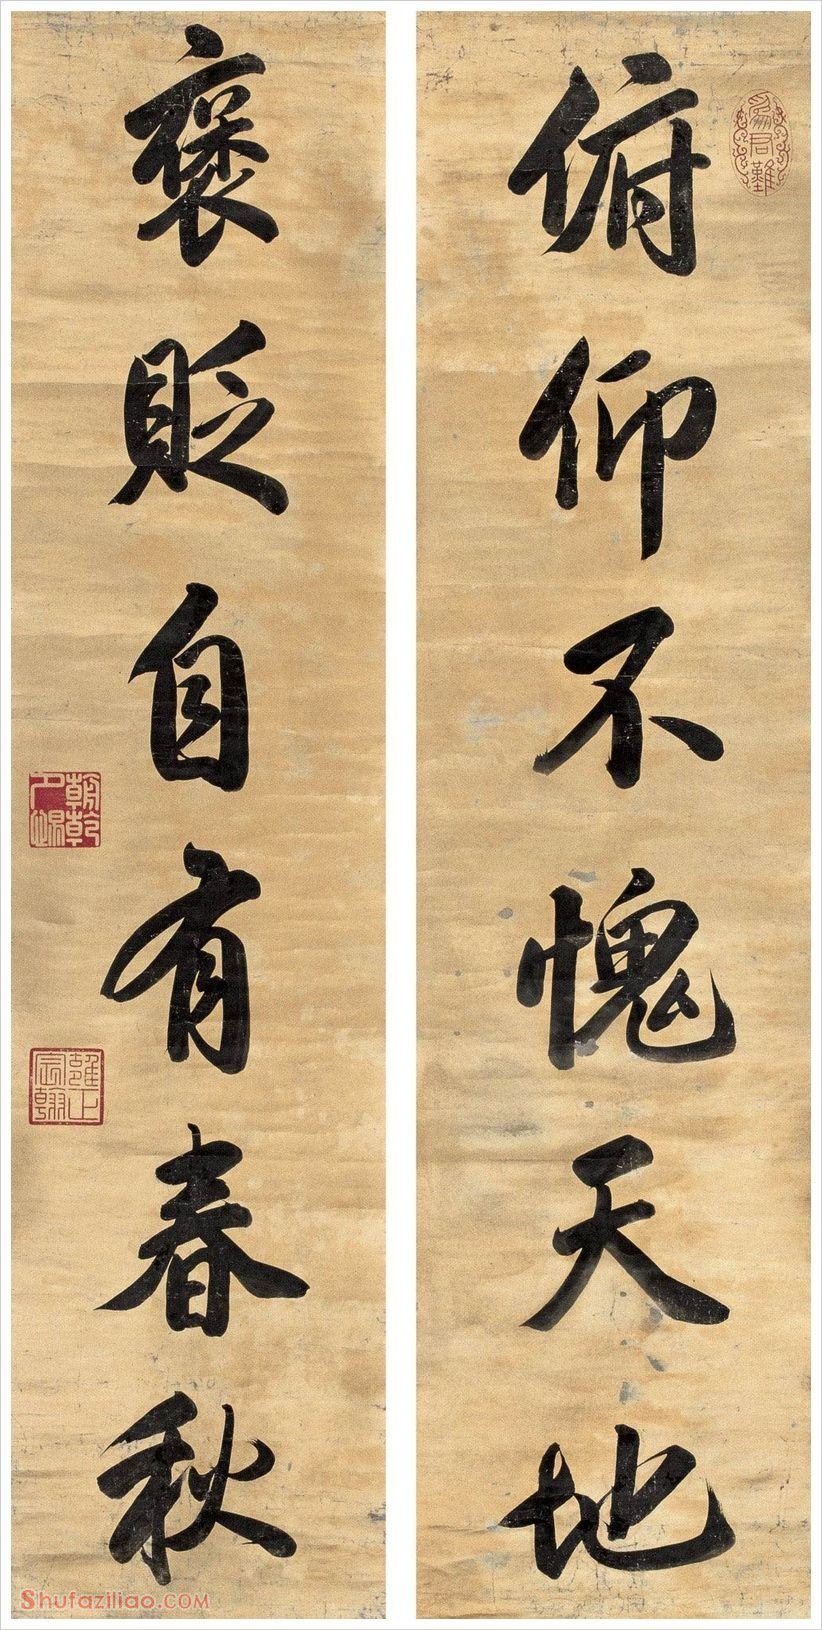 俯仰不愧天地
褒貶自有春秋
為君難
朝乾夕惕
雍正宸翰
Shufaziliao.COM